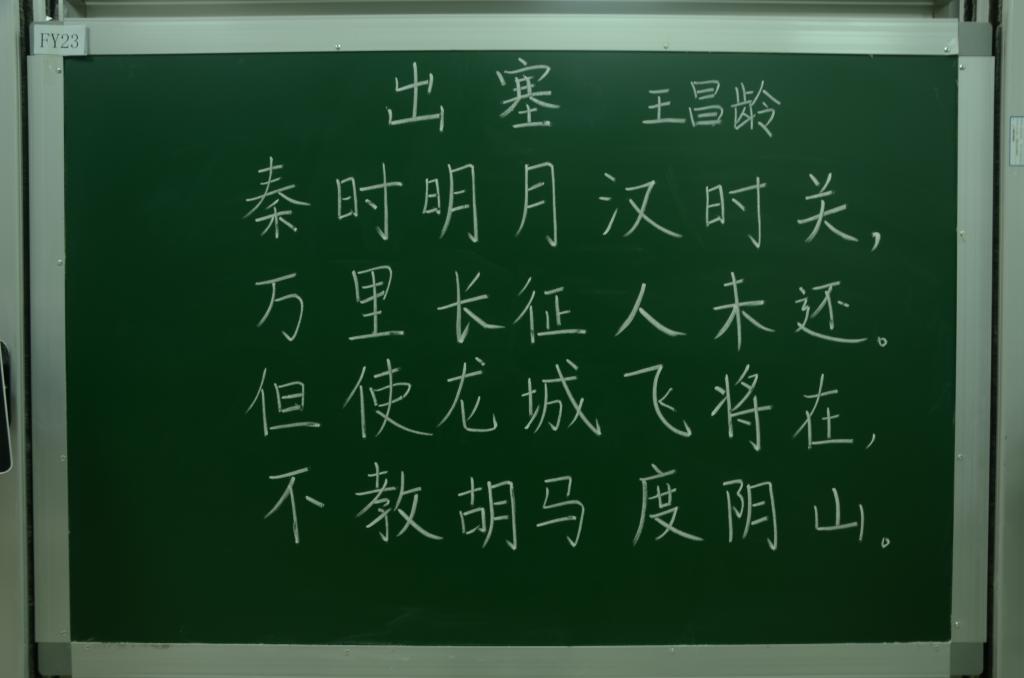 FY23
出塞 王昌龄
秦时明月汉时关,
万里长征人未还。
但使龙城飞将在,
不教胡马度阴山。